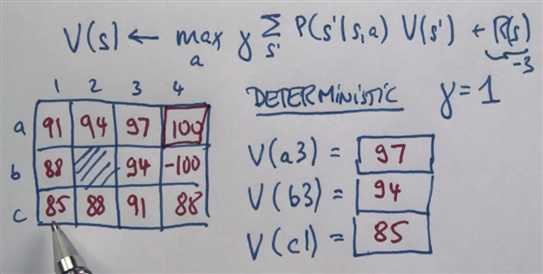 V(s) ← max_a γ Σ_s' P(s'|s,a) V(s') + R(s)
-3
1 2 3 4
DETERMINISTIC γ=1
a 91 94 97 100
V(a3) = 97
b 88 94 -100
V(b3) = 94
c 85 88 91 88
V(c1) = 85